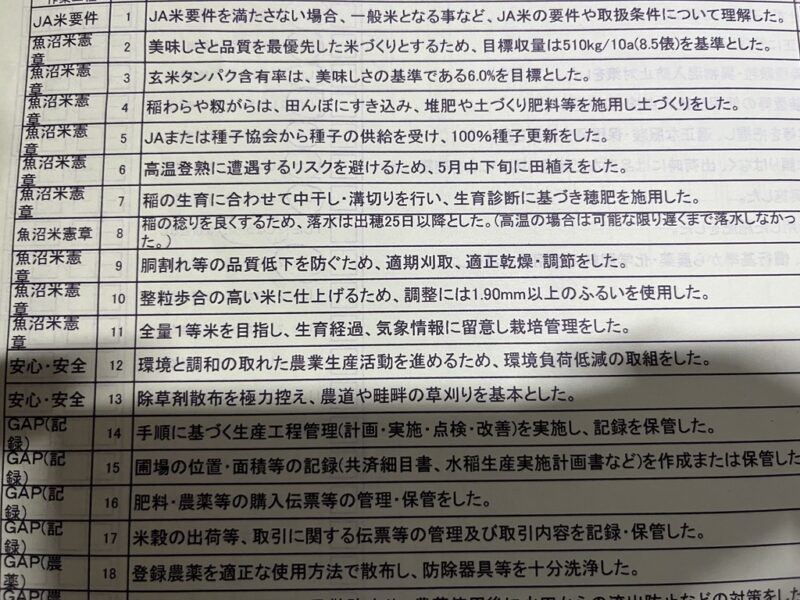 JA米要件 1 JA米要件を満たさない場合、一般米となる事など、JA米の要件や取扱条件について理解した。
魚沼米憲章 2 美味しさと品質を最優先した米づくりとするため、目標収量は510kg/10a(8.5俵)を基準とした。
魚沼米憲章 3 玄米タンパク含有率は、美味しさの基準である6.0%を目標とした。
魚沼米憲章 4 稲わらや籾がらは、田んぼにすき込み、堆肥や土づくり肥料等を施用し土づくりをした。
魚沼米憲章 5 JAまたは種子協会から種子の供給を受け、100%種子更新をした。
魚沼米憲章 6 高温登熟に遭遇するリスクを避けるため、5月中下旬に田植えをした。
魚沼米憲章 7 稲の生育に合わせて中干し・溝切りを行い、生育診断に基づき穂肥を施用した。
魚沼米憲章 8 稲の稔りを良くするため、落水は出穂25日以降とした。(高温の場合は可能な限り遅くまで落水しなかった。)
魚沼米憲章 9 胴割れ等の品質低下を防ぐため、適期刈取、適正乾燥・調節をした。
魚沼米憲章 10 整粒歩合の高い米に仕上げるため、調整には1.90mm以上のふるいを使用した。
魚沼米憲章 11 全量1等米を目指し、生育経過、気象情報に留意し栽培管理をした。
安心・安全 12 環境と調和の取れた農業生産活動を進めるため、環境負荷低減の取組をした。
安心・安全 13 除草剤散布を極力控え、農道や畦畔の草刈りを基本とした。
GAP(記録) 14 手順に基づく生産工程管理(計画・実施・点検・改善)を実施し、記録を保管した。
GAP(記録) 15 圃場の位置・面積等の記録(共済細目書、水稲生産実施計画書など)を作成または保管した
GAP(記録) 16 肥料・農薬等の購入伝票等の管理・保管をした。
GAP(記録) 17 米穀の出荷等、取引に関する伝票等の管理及び取引内容を記録・保管した。
GAP(農薬) 18 登録農薬を適正な使用方法で散布し、防除器具等を十分洗浄した。
GAP(農